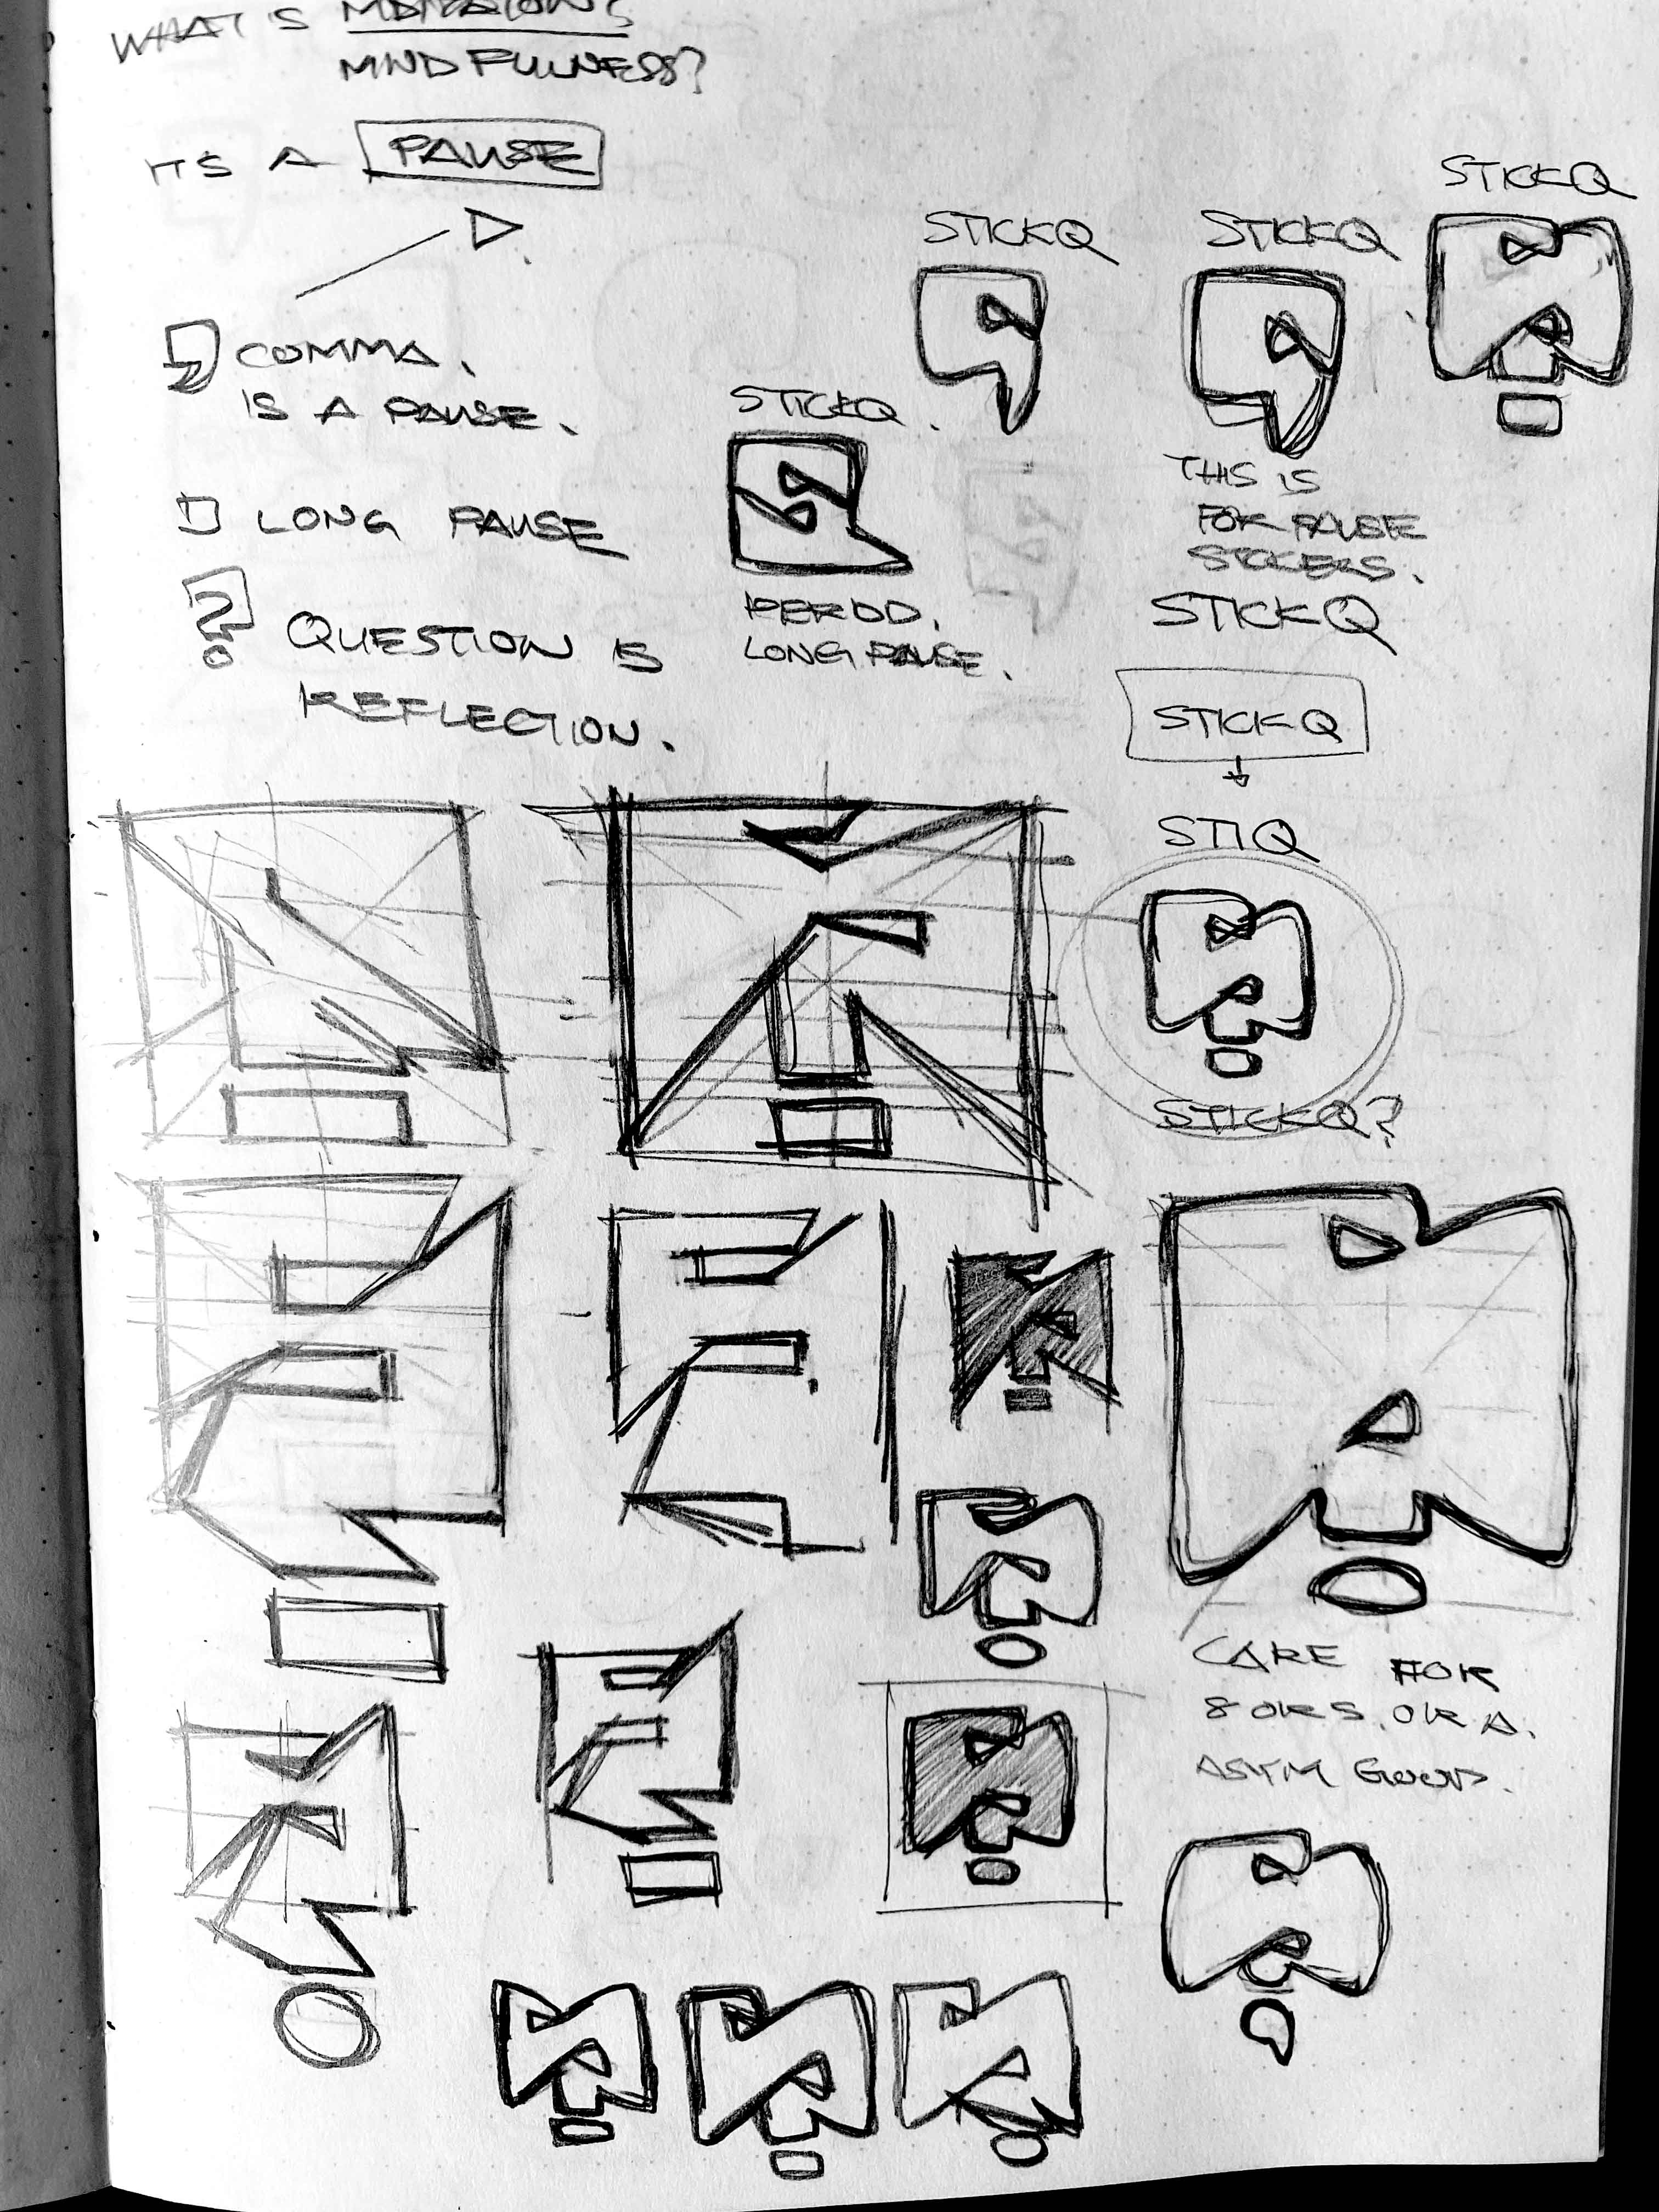 WHAT IS
MINDFULNESS?
ITS A PAUSE
COMMA,
IS A PAUSE.
LONG PAUSE
QUESTION IS
REFLECTION.
STICKQ
PERIOD.
LONG PAUSE.
STICKQ
STICKQ
STICKQ
THIS IS
FOR PAUSE
STICKERS.
STICKQ
STICKQ
STIQ
STICKQ?
CARE FOR
ASYM GOOD.